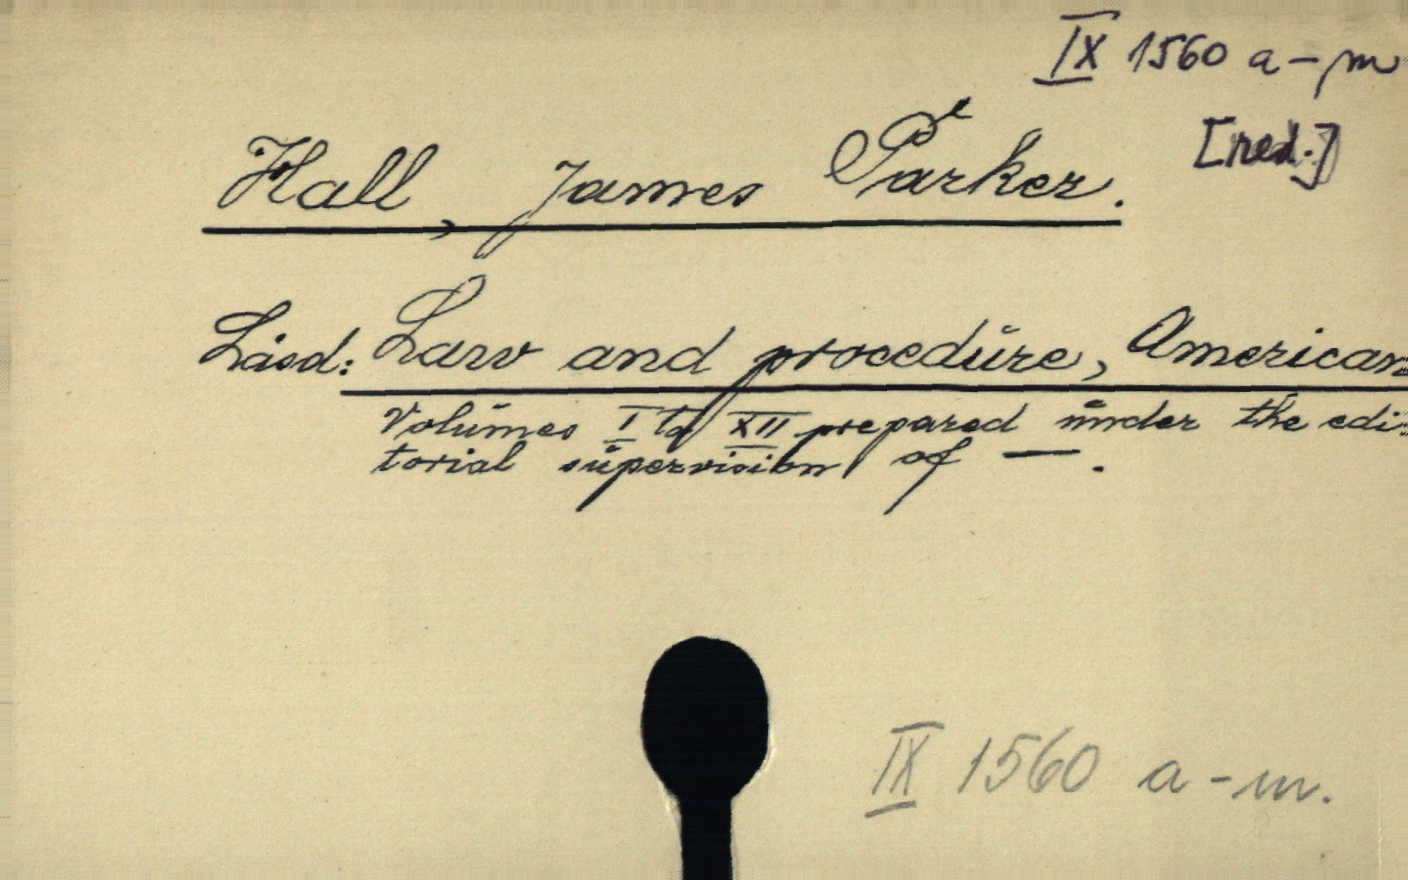 IX 1560 a-m
[red.]
Hall, James Parker.
Lásd: Law and procedure, American
Volumes I to XII prepared under the edi-
torial supervision of —.
IX 1560 a-m.